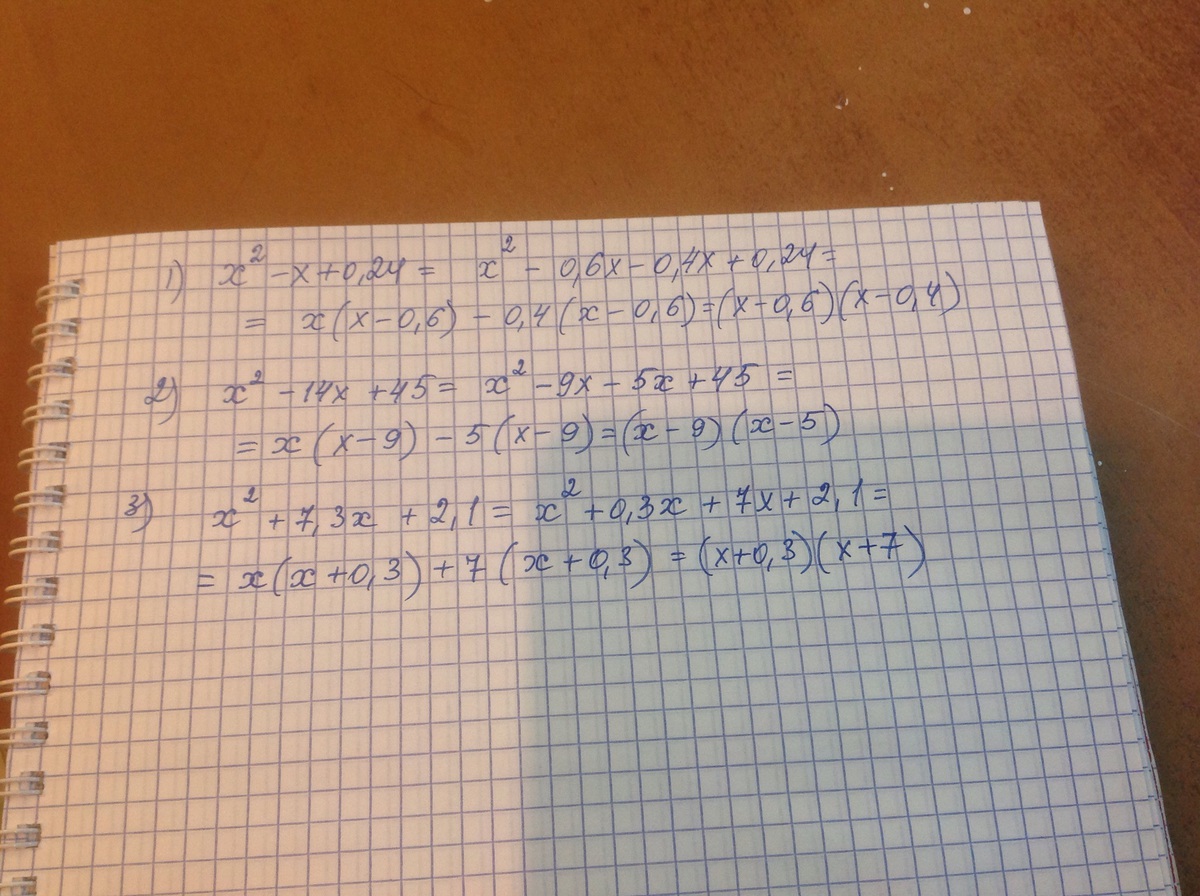 1) x² - x + 0,24 = x² - 0,6x - 0,4x + 0,24 =
= x(x - 0,6) - 0,4(x - 0,6) = (x - 0,6)(x - 0,4)
2) x² - 14x + 45 = x² - 9x - 5x + 45 =
= x(x - 9) - 5(x - 9) = (x - 9)(x - 5)
3) x² + 7,3x + 2,1 = x² + 0,3x + 7x + 2,1 =
= x(x + 0,3) + 7(x + 0,3) = (x + 0,3)(x + 7)